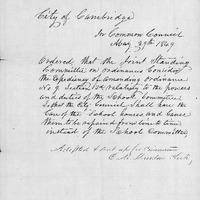 City of Cambridge
In Common Council
May 29th 1849
Ordered, that the Joint Standing
Committee on Ordinances Consider
the Expediency of amending ordinance
No 9 Section 12th relating to the powers
and duties of the School Committee
So that the City Council Shall have the
Care of the School houses and cause
them to be repaired from time to time
instead of the School Committee
Adopted & sent up for concurrence
Clerk